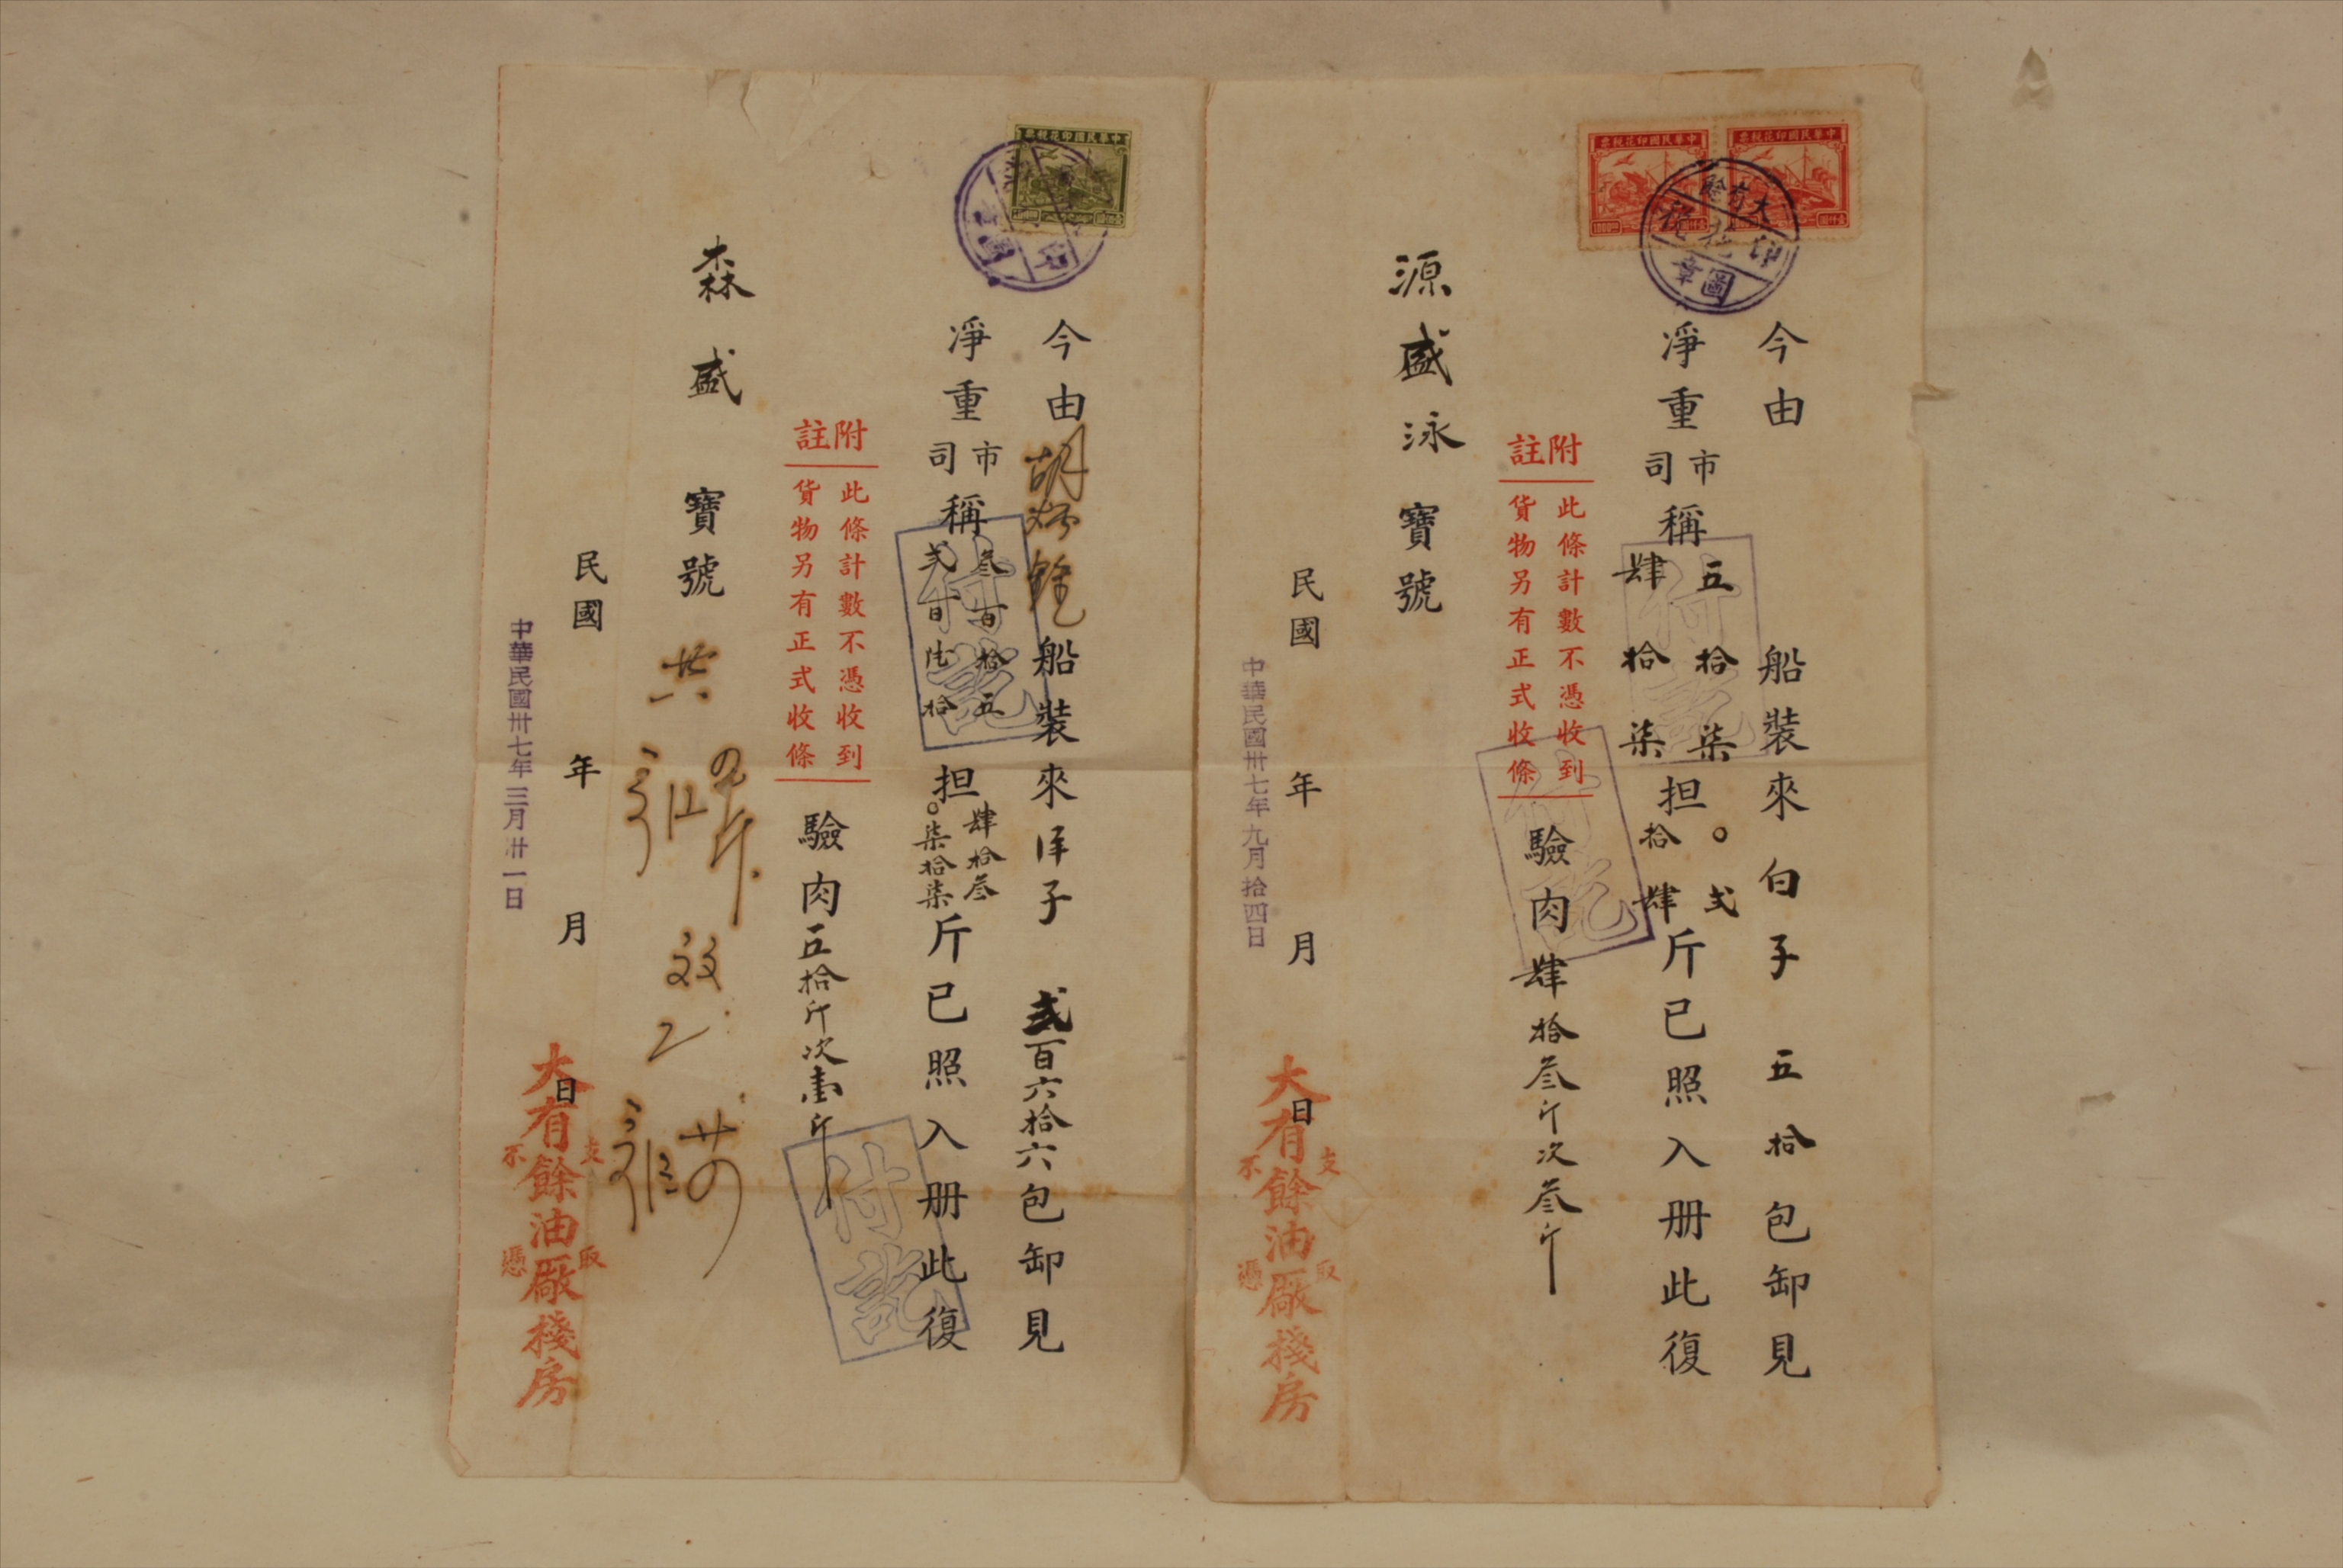 中華民國印花稅票
中華民國印花稅票
大有餘
印花稅
圖章
今由　船裝來白子　五拾包卸見
淨重市司稱
五拾柒担○弍
肆拾柒担拾肆
斤已照入册此復
附註
此條計數不憑收到
貨物另有正式收條
驗肉肆拾叁斤次叁斤
源盛泳寶號
民國　年　月　日
中華民國卅七年九月拾四日
大有餘油廠棧房
支取不憑
中華民國印花稅票
圖章
今由胡　船裝來洋子　弍百六拾六包卸見
淨重市司稱
叁百拾五担肆拾叁
弍百陆拾担○柒拾柒
斤已照入册此復
付訖
附註
此條計數不憑收到
貨物另有正式收條
驗肉五拾斤次壹斤
付訖
森盛寶號
民國　年　月　日
中華民國卅七年三月卅一日
大有餘油廠棧房
支取不憑